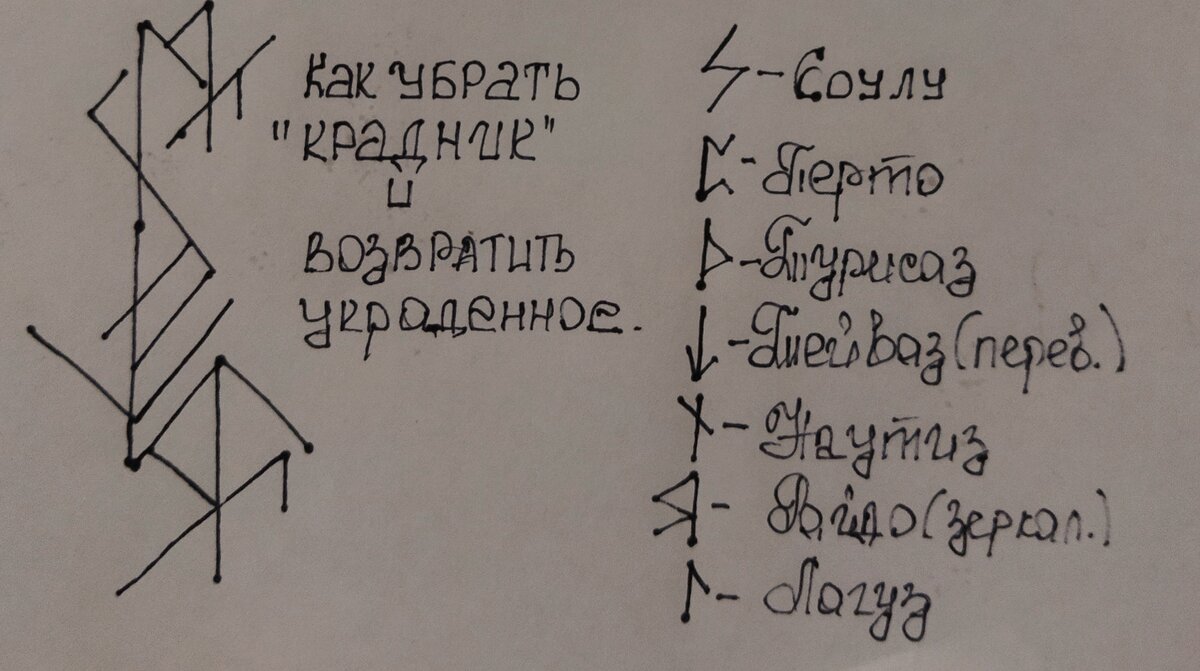 Как убрать
"крадник"
и
возвратить
украденное.
ᛊ - Соулу
ᛈ - Перто
ᚦ - Турисаз
↓ - Тейваз (перев.)
ᚾ - Наутиз
Я - Райдо (зеркал.)
ᛚ - Лагуз